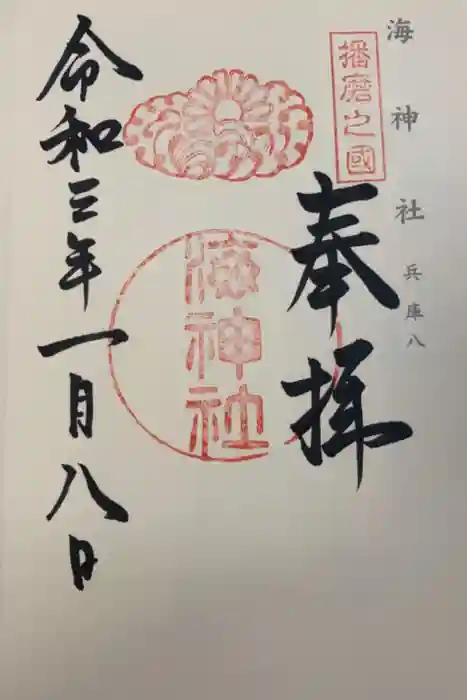 海神社 兵庫八
播磨之國
奉拝
海神社
令和三年一月八日